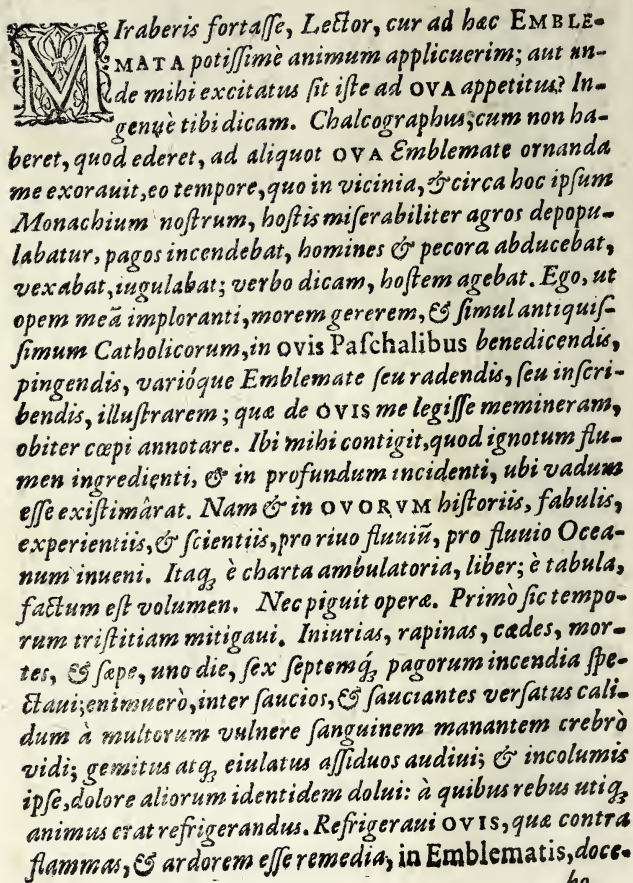 MIraberis fortasse, Lector, cur ad hæc EMBLE-
MATA potissimè animum applicuerim; aut un-
de mihi excitatus sit iste ad OVA appetitus? In-
genuè tibi dicam. Chalcographus, cum non ha-
beret, quod ederet, ad aliquot OVA Emblemate ornanda
me exorauit, eo tempore, quo in vicinia, & circa hoc ipsum
Monachium nostrum, hostis miserabiliter agros depopu-
labatur, pagos incendebat, homines & pecora abducebat,
vexabat, iugulabat; verbo dicam, hostem agebat. Ego, ut
opem meã imploranti, morem gererem, & simul antiquis-
simum Catholicorum, in Ovis Paschalibus benedicendis,
pingendis, varióque Emblemate seu radendis, seu inscri-
bendis, illustrarem; quæ de OVIS me legisse memineram,
obiter cœpi annotare. Ibi mihi contigit, quod ignotum flu-
men ingredienti, & in profundum incidenti, ubi vadum
esse existimârat. Nam & in OVORVM historiis, fabulis,
experientiis, & scientiis, pro riuo fluuiũ, pro fluuio Ocea-
num inueni. Itaq; è charta ambulatoria, liber; è tabula,
factum est volumen. Nec piguit operæ. Primò sic tempo-
rum tristitiam mitigaui. Iniurias, rapinas, cædes, mor-
tes, & sæpe, uno die, sex septemq́; pagorum incendia spe-
ctaui; enimuerò, inter saucios, & sauciantes versatus cali-
dum à multorum vulnere sanguinem manantem crebrò
vidi; gemitus atq; eiulatus assiduos audiui; & incolumis
ipse, dolore aliorum identidem dolui: à quibus rebus utiq;
animus erat refrigerandus. Refrigeraui OVIS, quæ contra
flammas, & ardorem esse remedia, in Emblematis, doce-
bo